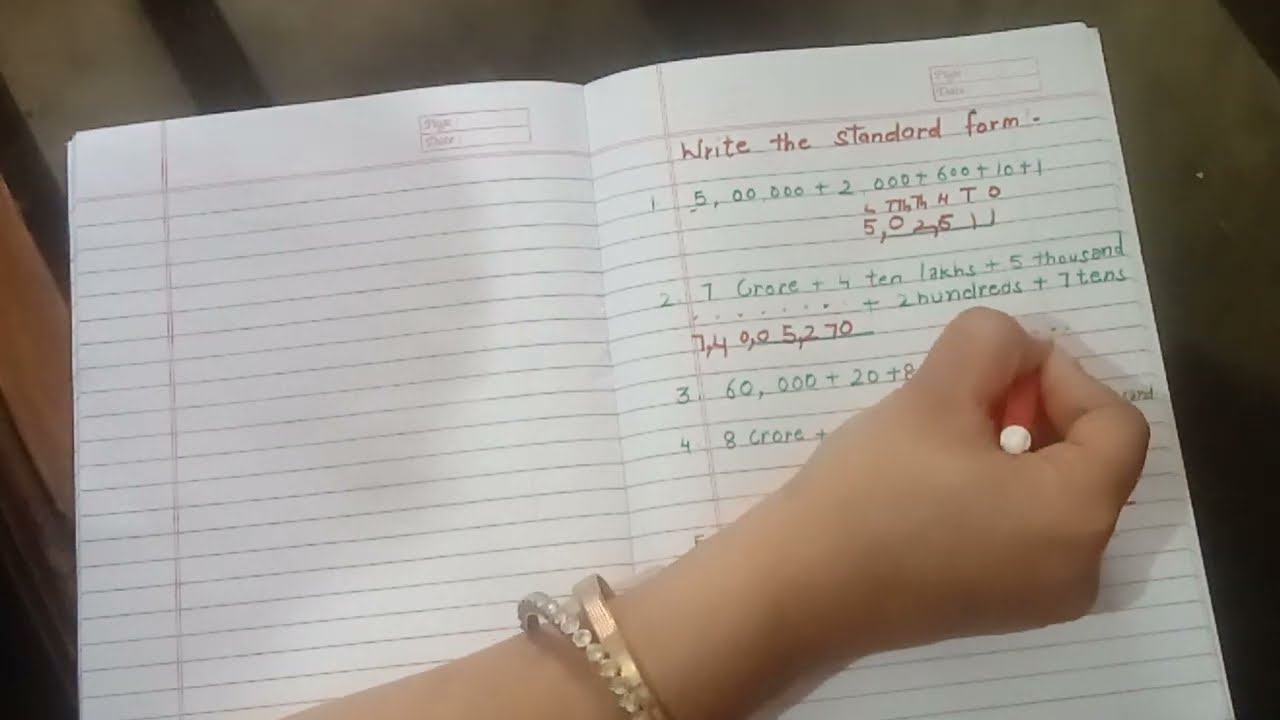 Page
Date
Page
Date
Write the standard form.
1. 5,00,000 + 2,000 + 600 + 10 + 1
L TTh Th H T O
5,02,511
2. 7 Crore + 4 ten lakhs + 5 thousand
+ 2 hundreds + 7 tens
7,40,05,270
3. 60,000 + 20 + 8
4 8 Crore +
5